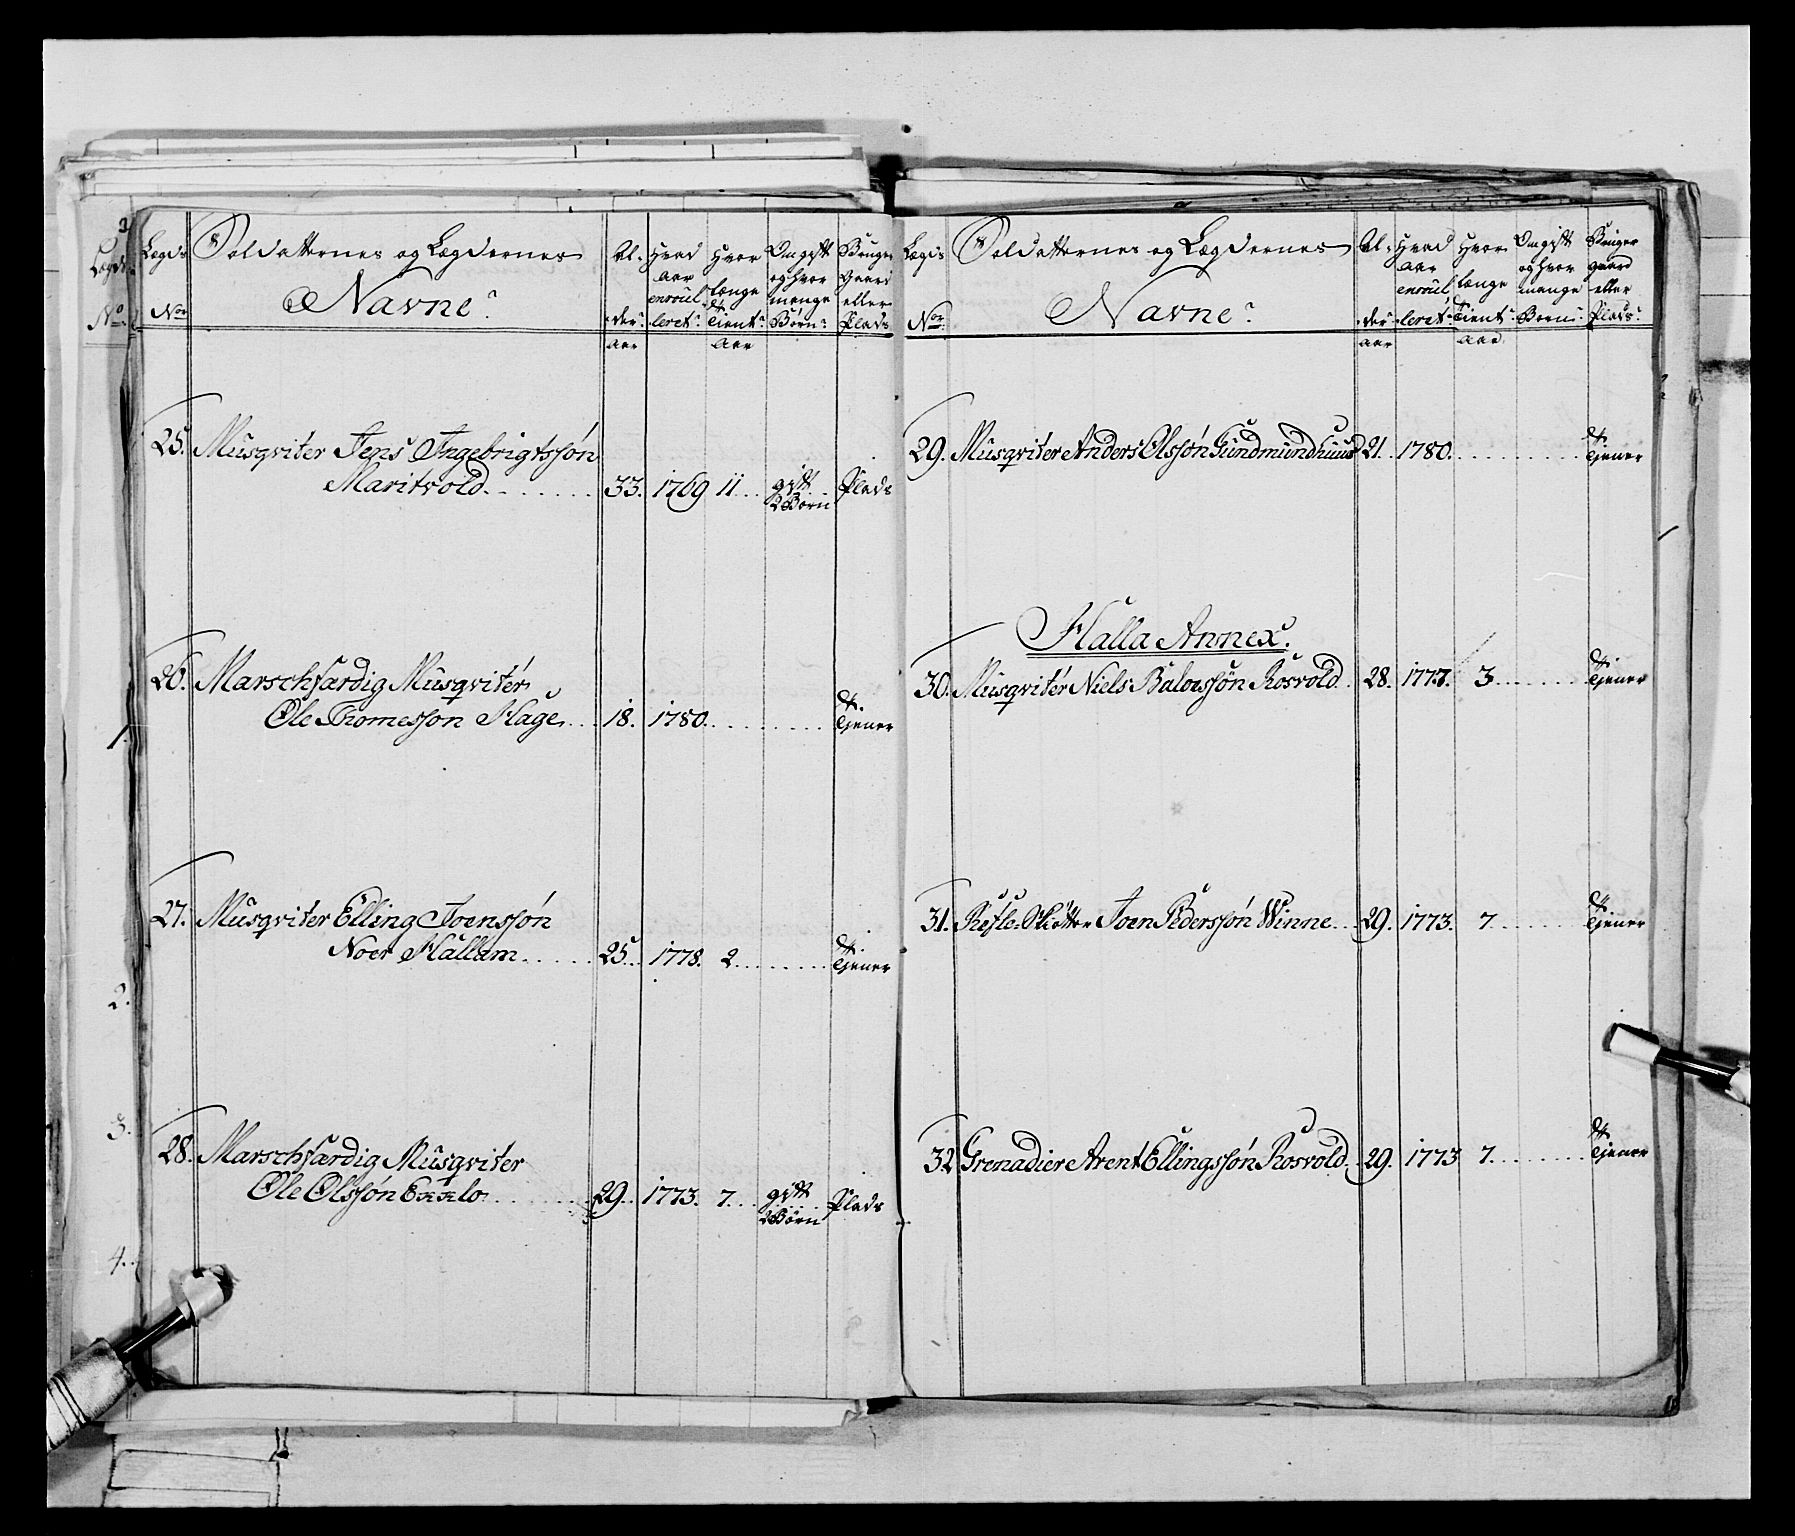 Lægds
Nor
Soldatternes og Lægdernes
Navne
Al-
der
aar
Hvad
aar
enroul-
leret
Hvor
længe
Tient
aar
Om gift
og hvor
mange
Børn
Bruger
Gaard
eller
Plads
25. Musqviter Jens Ingebrigtssøn
Maritvold 33. 1769 11 gift Plads
2 Børn
26. Marschfærdig Musqviter
Ole Thomessøn Hage 18. 1780. Tjener
27. Musqviter Elling Joenssøn
Noer Hallam 25. 1778. 2 Tjener
28. Marschfærdig Musqviter
Ole Olssøn Exxlo 29. 1773. 7. gift Plads
2 Børn
Lægds
Nor
Soldatternes og Lægdernes
Navne
Al-
der
aar
Hvad
aar
enroul-
leret
Hvor
længe
Tient
aar
Om gift
og hvor
mange
Børn
Bruger
gaard
eller
Plads
29. Musqviter Anders Olssøn Gundmundhuus 21. 1780. Tjener
Halla Annex.
30. Musqviter Niels Balvssøn Rosvold 28. 1777. 3 Tjener
31. Refle-Skötter Joen Pederssøn Winne 29. 1773. 7 Tjener
32 Grenadier Arent Ellingssøn Rosvold 29. 1773 7. Tjener
1.
2.
3.
4.